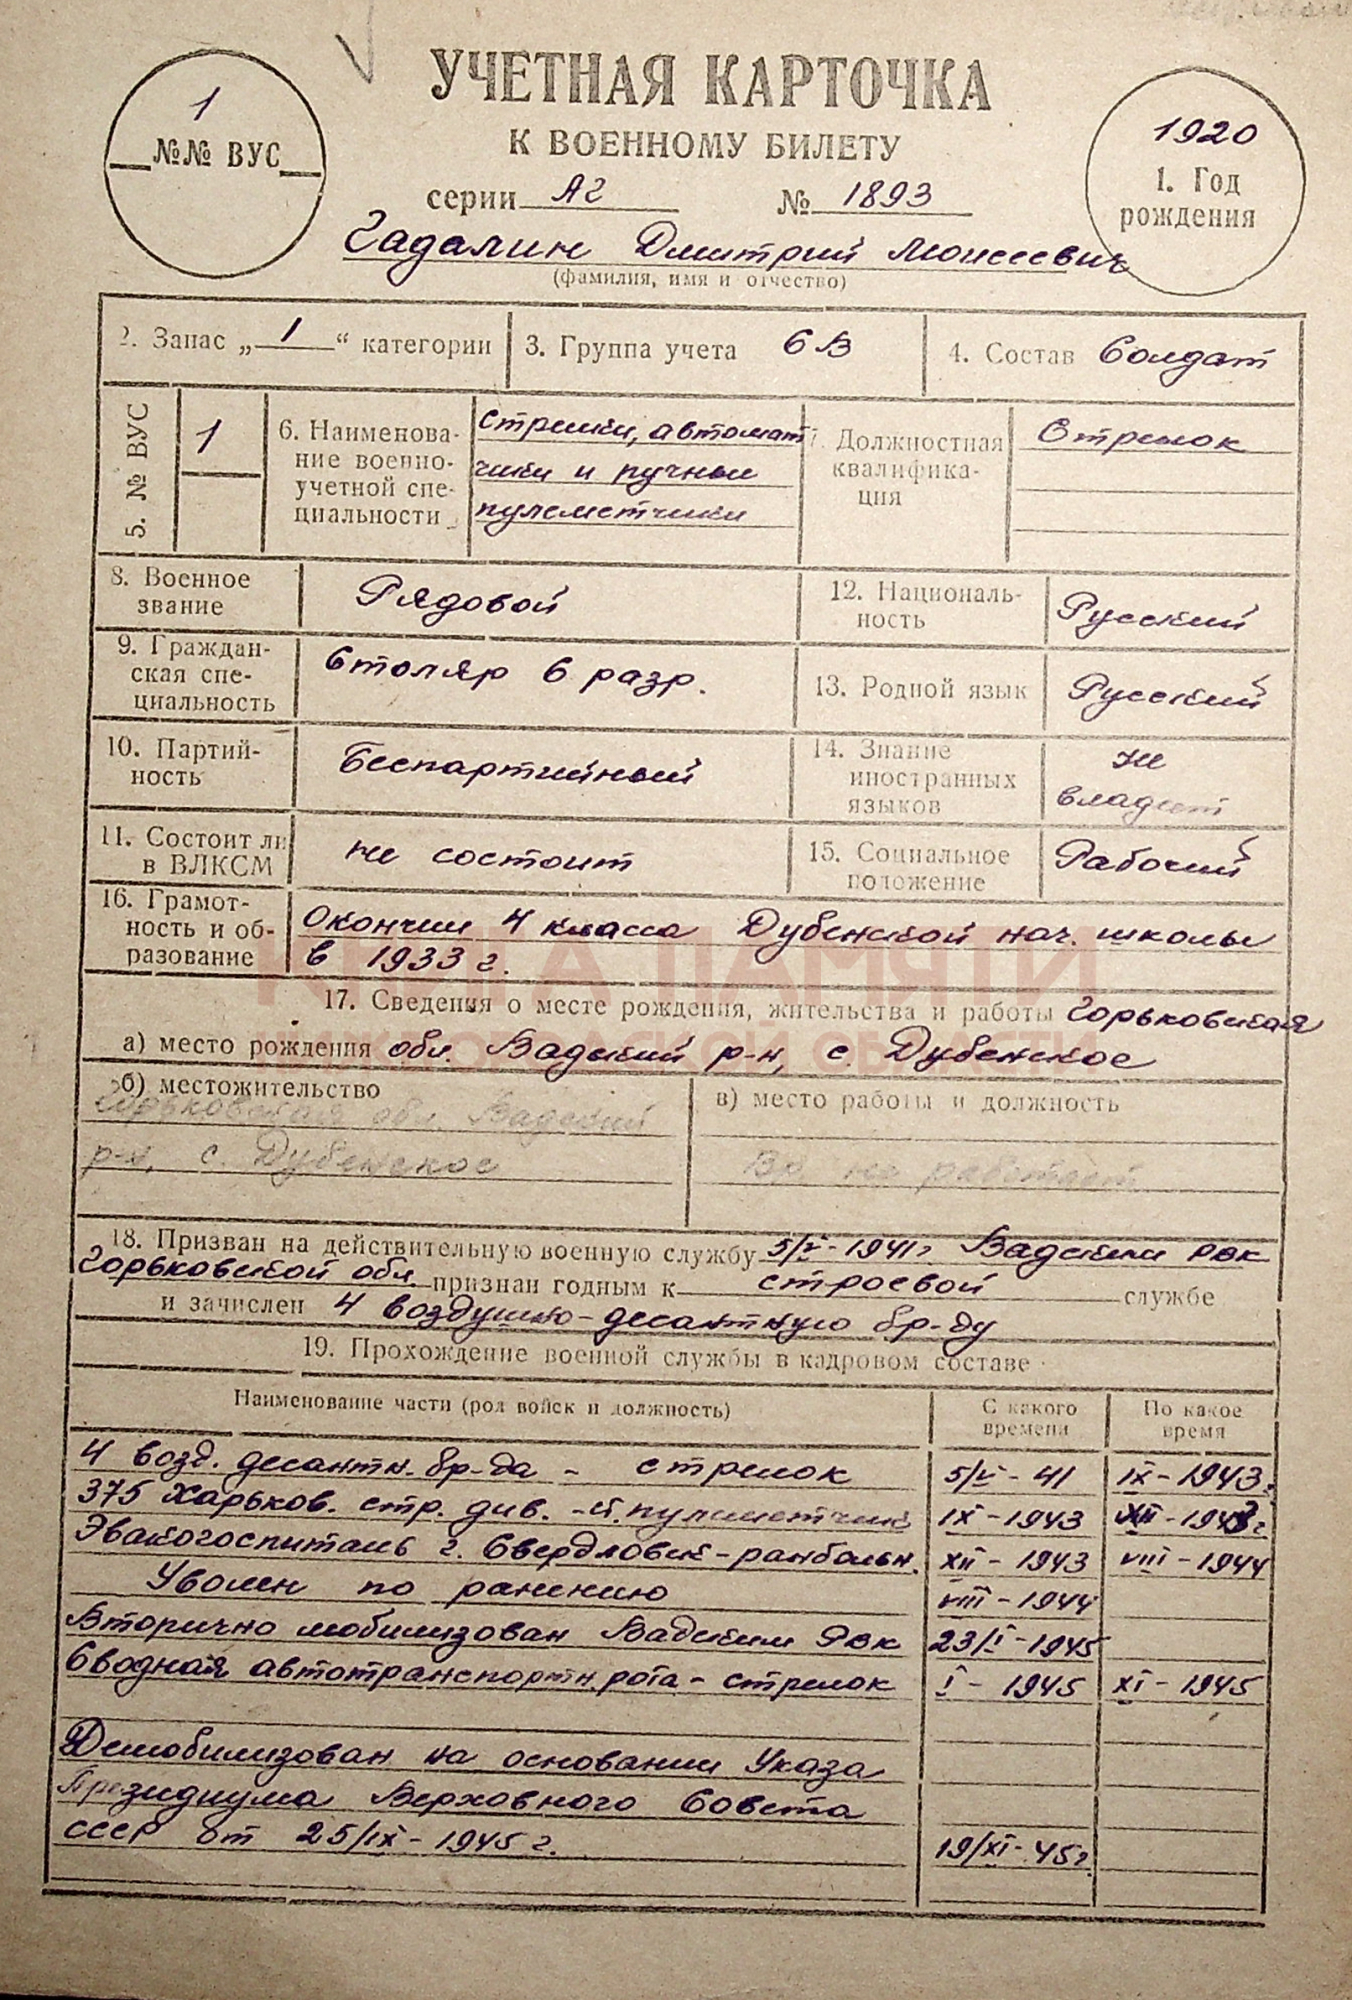 УЧЕТНАЯ КАРТОЧКА
К ВОЕННОМУ БИЛЕТУ
1
№№ ВУС
1920
1. Год
рождения
серии АГ № 1893
Гадалин Дмитрий Моисеевич
(фамилия, имя и отчество)
2. Запас „1“ категории
3. Группа учета СВ
4. Состав Солдат
5. № ВУС
1
6. Наименова-
ние военно-
учетной спе-
циальности
Стрелки, автомат
чики и ручные
пулеметчики
7. Должностная
квалифика-
ция
Стрелок
8. Военное
звание
Рядовой
12. Националь-
ность
Русский
9. Граждан-
ская спе-
циальность
Столяр 6 разр.
13. Родной язык
Русский
10. Партий-
ность
Беспартийный
14. Знание
иностранных
языков
не
владеет
11. Состоит ли
в ВЛКСМ
не состоит
15. Социальное
положение
Рабочий
16. Грамот-
ность и об-
разование
Окончил 4 класса Дубенской нач. школы
в 1933 г.
КНИГА ПАМЯТИ
НИЖЕГОРОДСКОЙ ОБЛАСТИ
17. Сведения о месте рождения, жительства и работы Горьковская
а) место рождения обл. Вадский р-н, с. Дубенское
б) местожительство
Горьковская обл. Вадский
р-н, с. Дубенское
в) место работы и должность
Вр. не работает
18. Призван на действительную военную службу 5/V-1941г Вадским РВК
Горьковской обл. признан годным к строевой службе
и зачислен 4 воздушно-десантную бр-ду
19. Прохождение военной службы в кадровом составе
Наименование части (род войск и должность)
С какого
времени
По какое
время
4 возд. десантн. бр-да - стрелок 5/V-41 IX-1943г
375 Харьков. стр. див. -ст. пулеметчик IX-1943 XII-1943г
Эвакогоспиталь г. Свердловск-ранбольн. XII-1943 VIII-1944
Уволен по ранению VIII-1944
Вторично мобилизован Вадским РВК 23/I-1945
Сводная автотранспортн. рота - стрелок I-1945 XI-1945
Демобилизован на основании Указа
Президиума Верховного Совета
СССР от 25/IX-1945 г. 19/XI-45г.